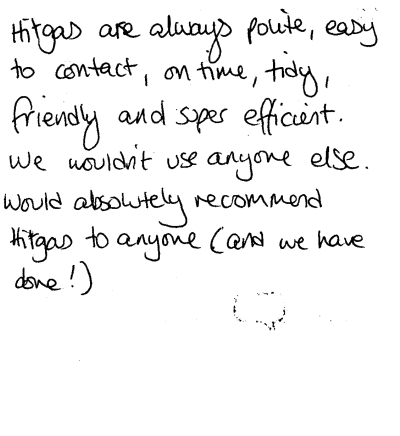 Hitgas are always polite, easy
to contact, on time, tidy,
friendly and super efficient.
We wouldn't use anyone else.
Would absolutely recommend
Hitgas to anyone (and we have
done!)